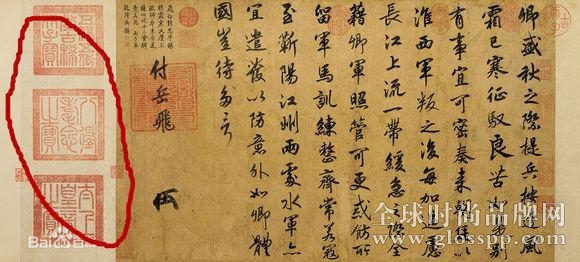 卿盛秋之際提兵按邊風
霜已寒征馭良苦如是別
有事宜可密奏来朝廷以
淮西軍叛之後每加過慮
長江上流一帶緩急之際全
藉卿軍照管可更戒飭所
留軍馬訓練整齊常若寇
至蘄陽江州兩處水軍亦
宜遣發以防意外如卿體
國豈待多言
付岳飛
八徵耄念之寶
太上皇帝之寶
Bai百科
全球时尚品牌网
www.glosspp.com